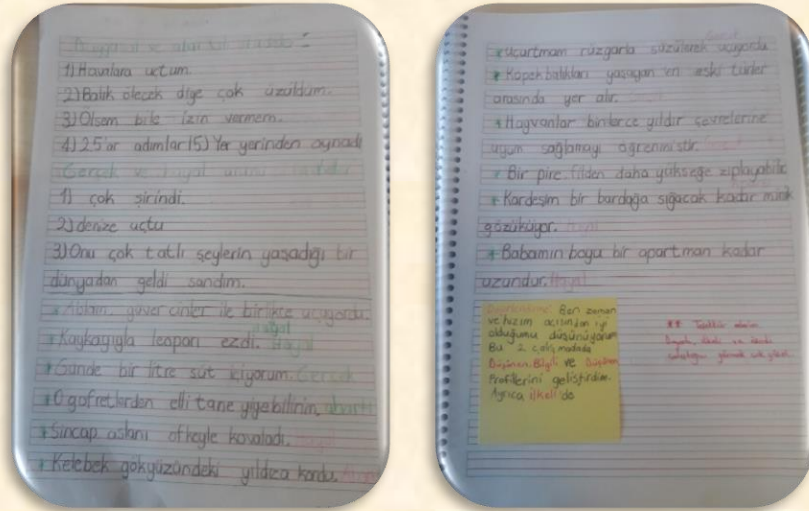 Duygusal ve abartılı ifadeler
1) Havalara uçtum.
2) Balık ölecek diye çok üzüldüm.
3) Ölsem bile izin vermem.
4) 25'er adımlar 5) Yer yerinden oynadı
Gerçek ve hayal
1) çok şirindi.
2) denize uçtu
3) Onu çok tatlı şeylerin yaşadığı bir
dünyadan geldi sandım.
* Ablam, güvercinler ile birlikte uçuyordu.
hayal
* Kaykayıyla leoparı ezdi. Hayal
* Günde bir litre süt içiyorum. Gerçek
* O gofretlerden elli tane yiyebilirim. abartı
* Sincap aslanı öfkeyle kovaladı.
* Kelebek gökyüzündeki yıldıza kondu.
* Uçurtmam rüzgarla süzülerek uçuyordu
* Köpek balıkları yaşayan en eski türler
arasında yer alır.
* Hayvanlar binlerce yıldır çevrelerine
uyum sağlamayı öğrenmiştir.
* Bir pire, filden daha yükseğe zıplayabilir
* Kardeşim bir bardağa sığacak kadar minik
gözüküyor.
* Babamın boyu bir apartman kadar
uzundur. Hayal
Ben zaman
ve hızım açısından iyi
olduğumu düşünüyorum
Bu 2 çalışmada
Düşünen, Bilgili ve
Profillerini geliştirdim.
Ayrıca ilkeli de
** Teşekkür ederim